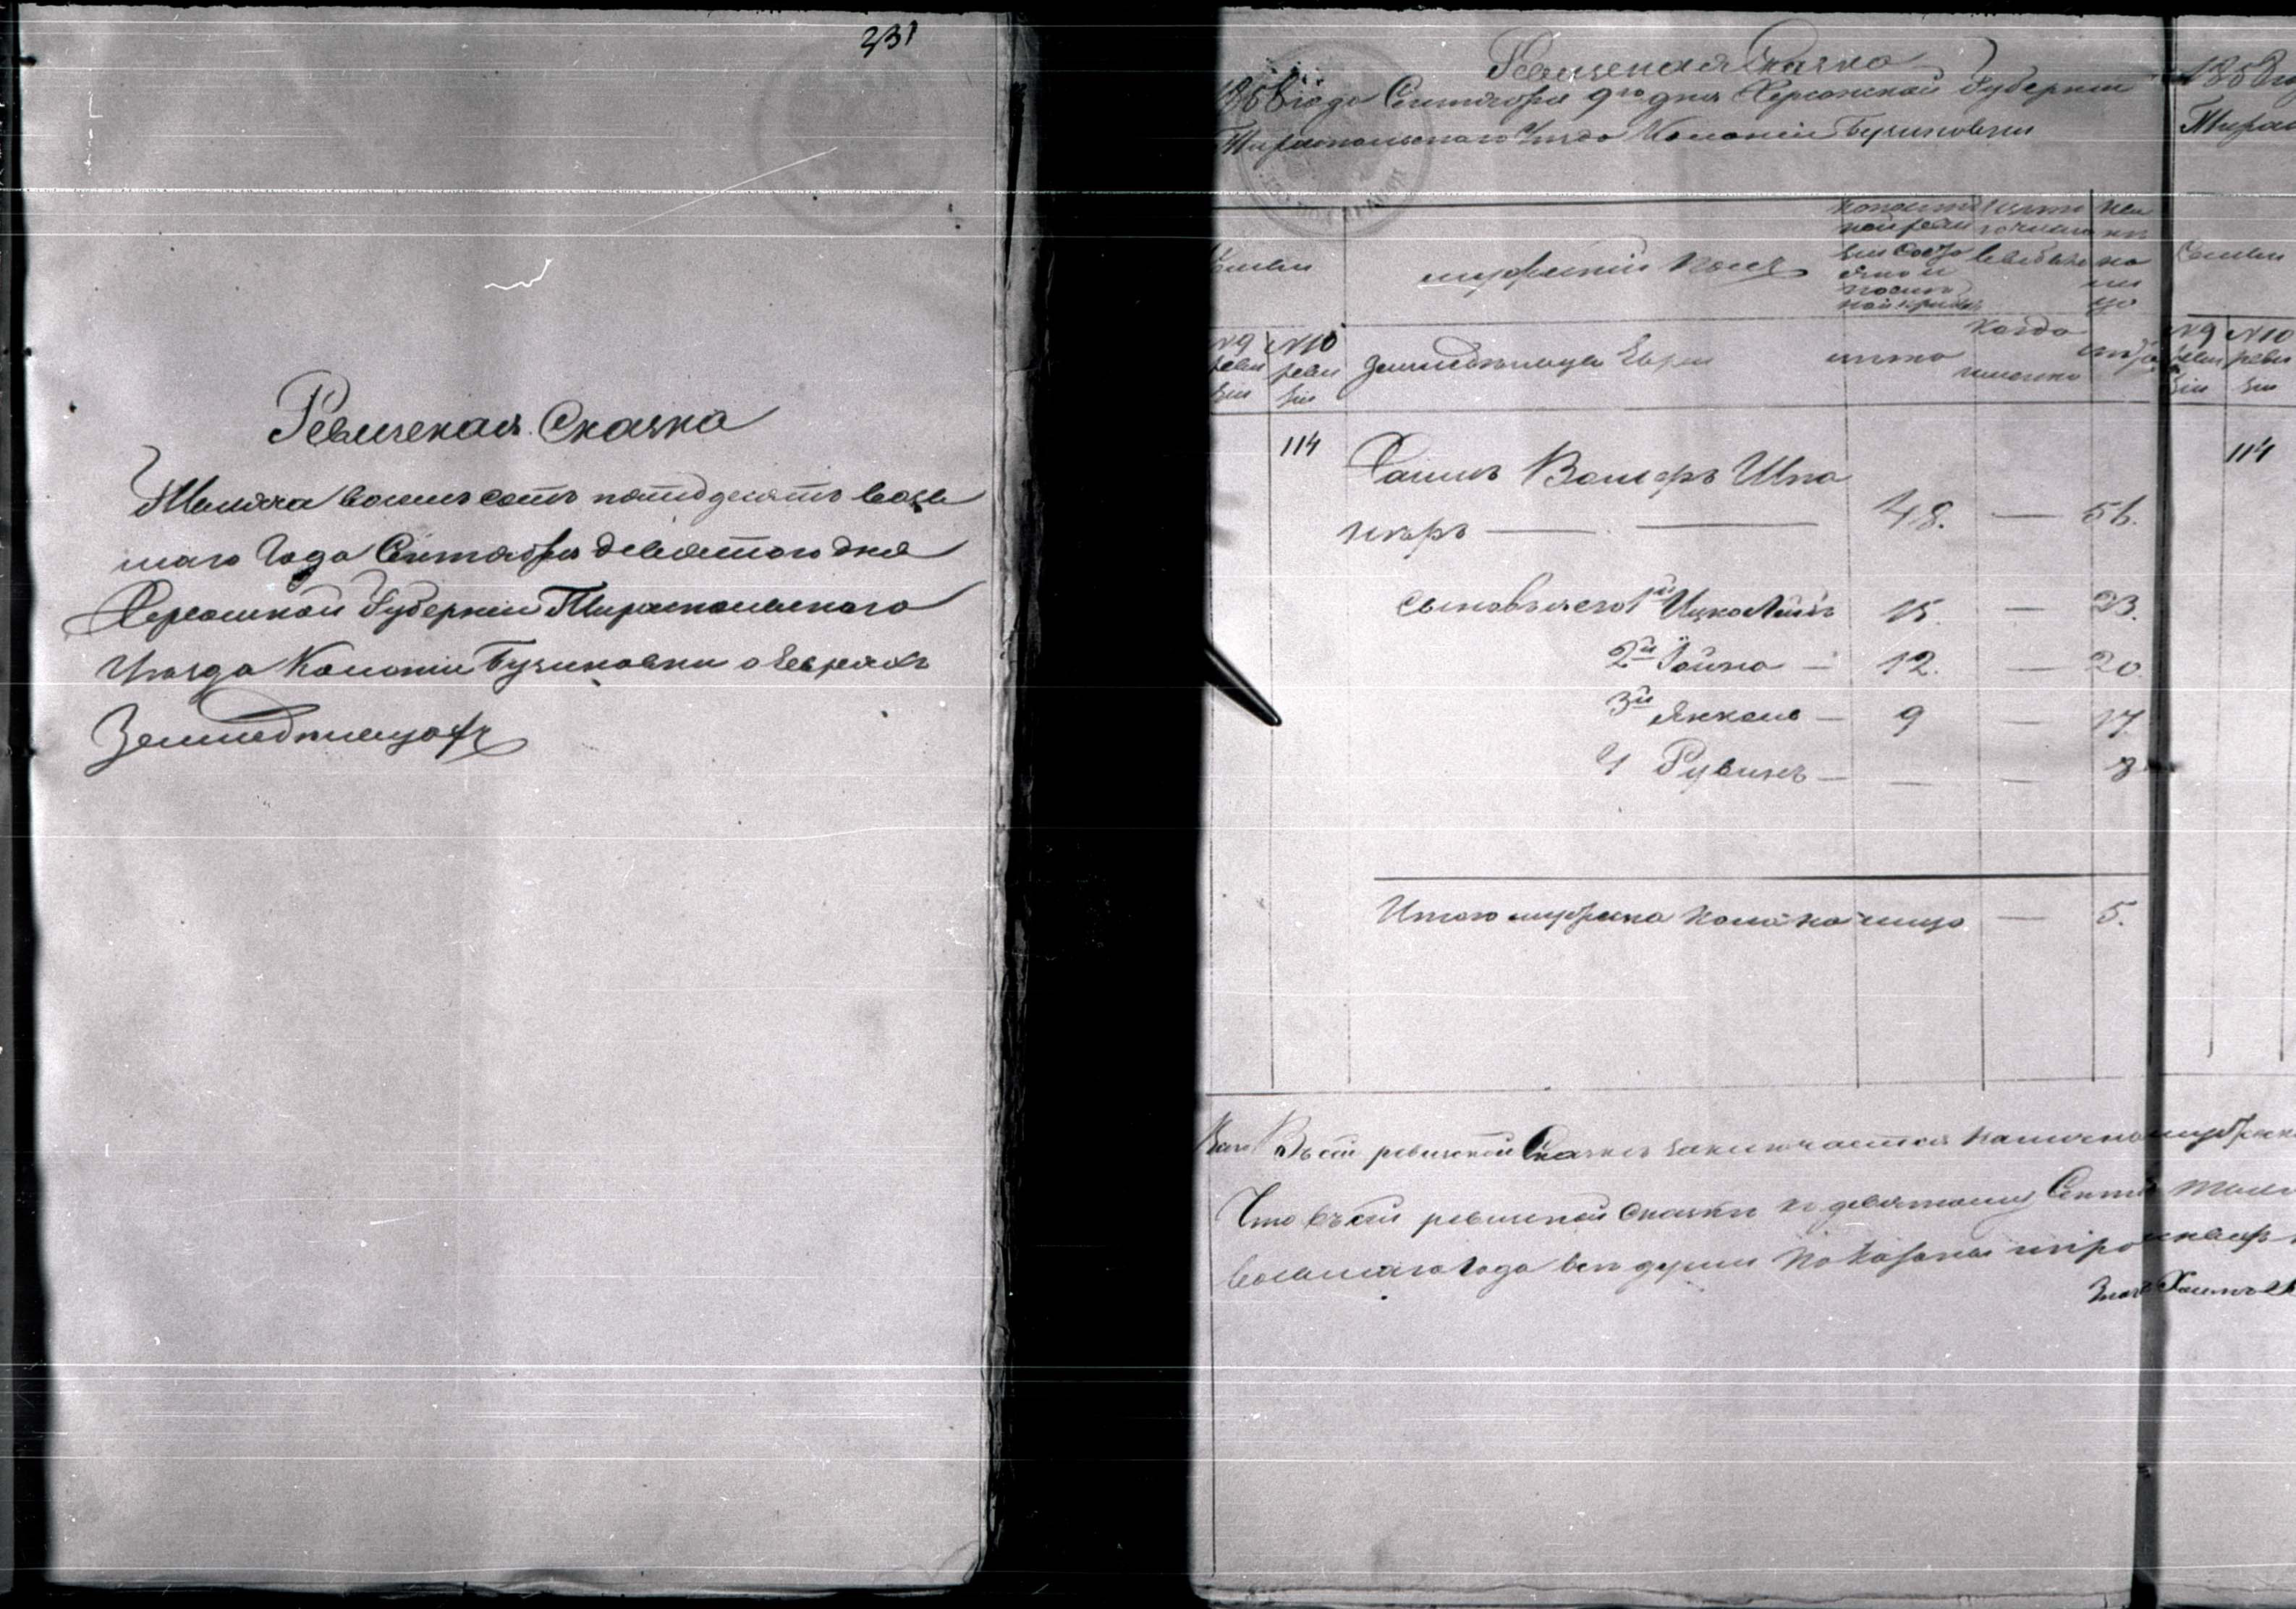 331
Ревизская Сказка
Тысяча восемь сотъ пятидесятъ вось
маго Года Сентября девятого дня
Херсонской Губерніи Тираспольского
Уѣзда Колоніи Бузиновки о Евреяхъ
Земледѣльцахъ
Ревизская Сказка
1858 года Сентября 9го дня Херсонской Губерніи
Тираспольскаго Уѣзда Колоніи Бузиновки
Семьи
мужескій полъ
№ 9 ревизіи
№ 10 ревизіи
Земледѣльцы Евреи
лѣта
Когда именно
лѣта
114
Хаимъ Вольфъ Шпа
непръ — — 48. — 56.
Сыновья его 1й Ицко Лейбъ 15. — 23.
2й Іойна — 12. — 20.
3й Янкель — 9 — 17.
4 Рувинъ — — — 3
Итого мужеска пола на лицо — 5.
Въ сей ревизской Сказкѣ заключается написано мужеска
Что въ сей ревизской сказкѣ къ девятому
восьмаго года всѣ души показаны
1858
Тирас
Семьи
№ 9 ревизіи
№ 10 ревизіи
114